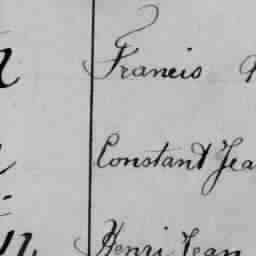 Francis
Constant Jea
Henri Jean